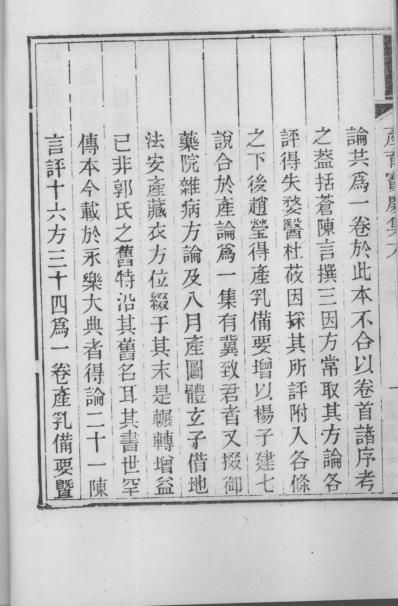 產育寶慶集
論共爲一卷於此本不合以卷首諸序考
之葢括蒼陳言撰三因方常取其方論各
評得失婺醫杜荍因採其所評附入各條
之下後趙瑩得產乳備要增以楊子建七
說合於產論爲一集有冀致君者又掇御
藥院雜病方論及八月產圖體玄子借地
法安產藏衣方位綴于其末是輾轉增益
已非郭氏之舊特沿其舊名耳其書世罕
傳本今載於永樂大典者得論二十一陳
言評十六方三十四爲一卷產乳備要暨